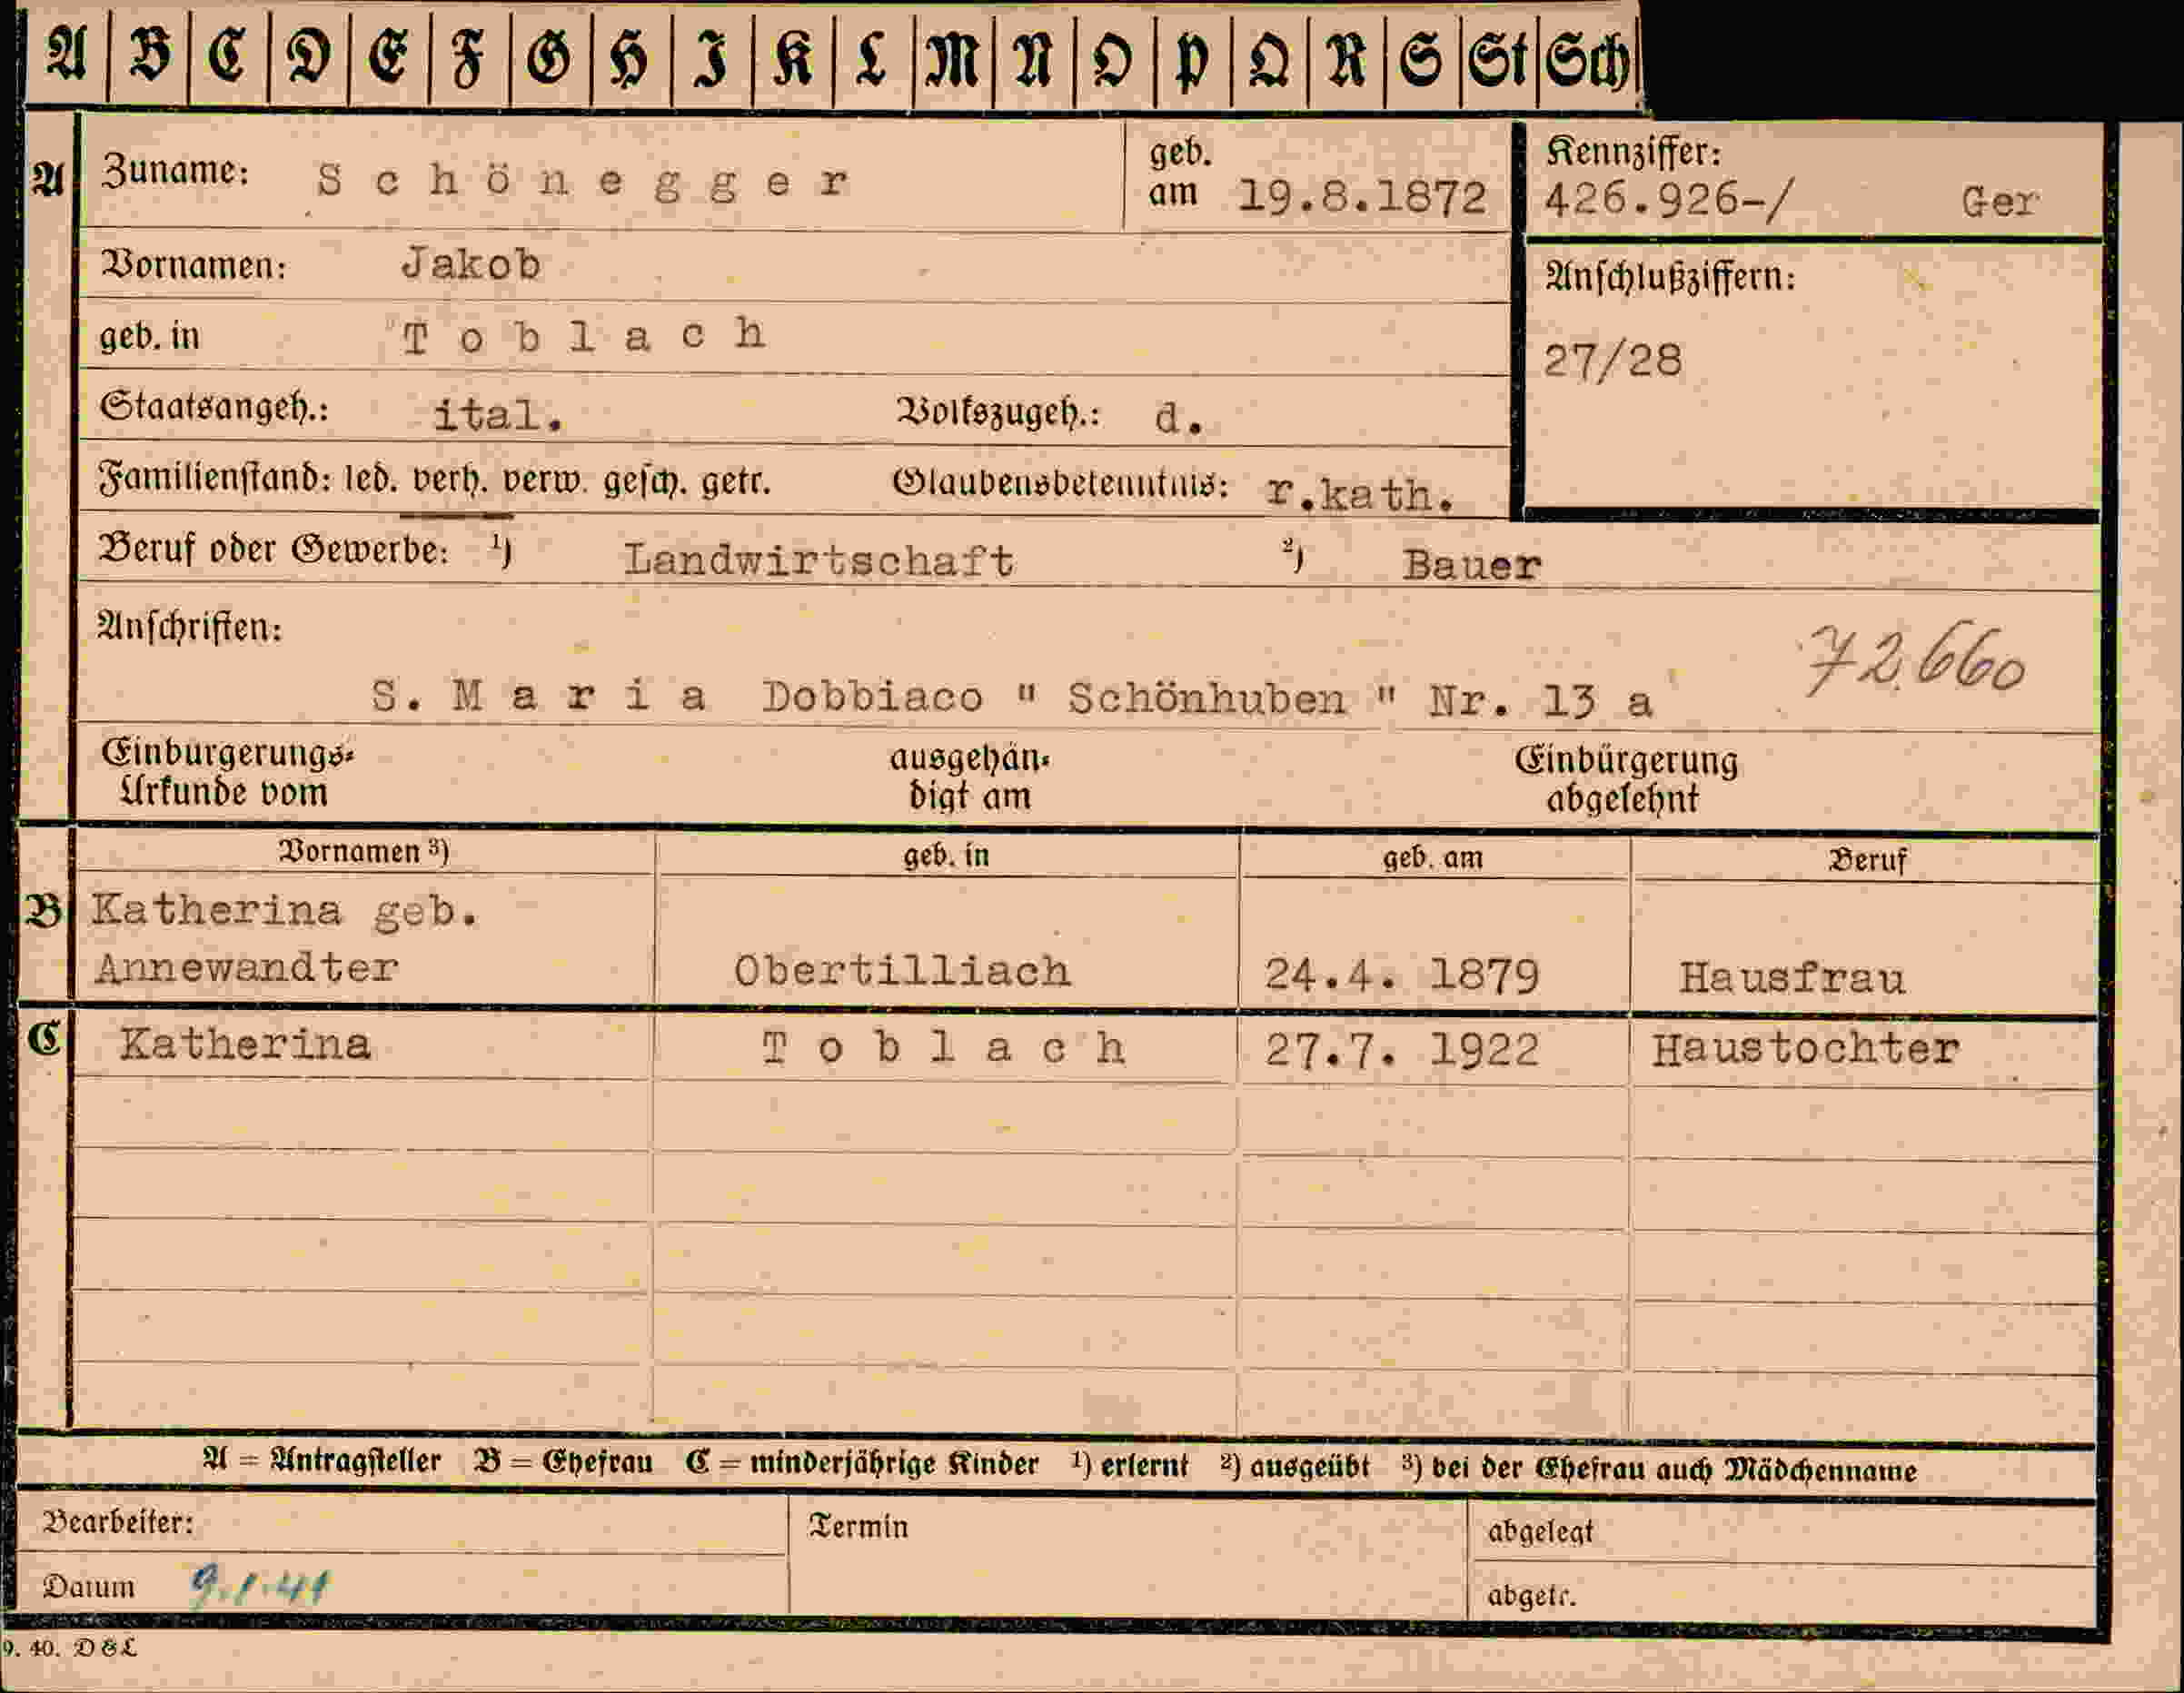 A B C D E F G H I K L M N O P Q R S St Sch
A Zuname: Schönegger geb. am 19.8.1872 Kennziffer: 426.926-/ Ger
Vornamen: Jakob Anschlußziffern:
geb. in Toblach 27/28
Staatsangeh.: ital. Volkszugeh.: d.
Familienstand: led. verh. verw. gesch. getr. Glaubensbekenntnis: r.kath.
Beruf oder Gewerbe: ¹) Landwirtschaft ²) Bauer
Anschriften: 72660
S. Maria Dobbiaco " Schönhuben " Nr. 13 a
Einbürgerungs- ausgehän- Einbürgerung
Urkunde vom digt am abgelehnt
Vornamen ³) geb. in geb. am Beruf
B Katherina geb.
Annewandter Obertilliach 24.4. 1879 Hausfrau
C Katherina Toblach 27.7. 1922 Haustochter
A = Antragsteller B = Ehefrau C = minderjährige Kinder ¹) erlernt ²) ausgeübt ³) bei der Ehefrau auch Mädchenname
Bearbeiter: Termin abgelegt
Datum 9.1.41 abgetr.
9. 40. D&L